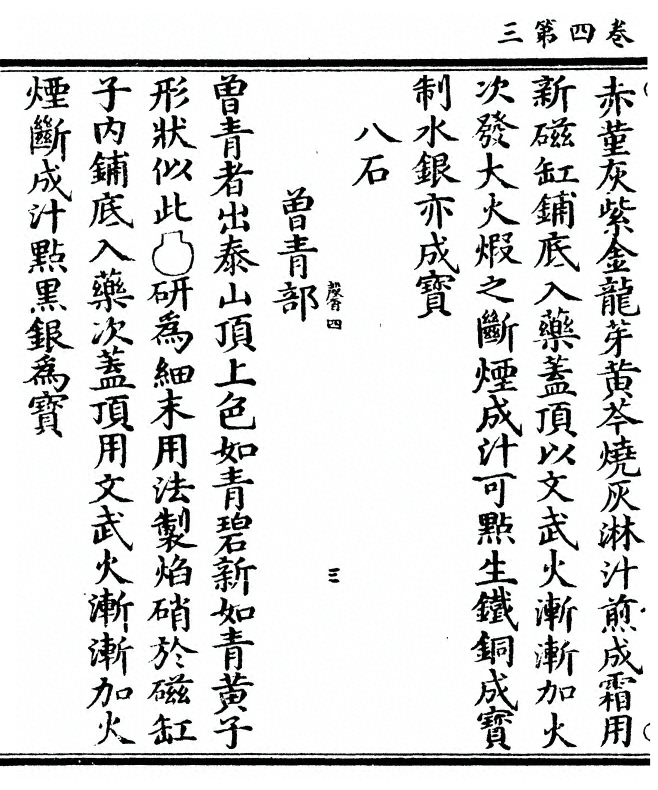 三第四卷
赤菫灰紫金龍芽黄芩燒灰淋汁煎成霜用
新磁缸鋪底入藥蓋頂以文武火漸漸加火
次發大火煆之斷煙成汁可點生鐵銅成寶
制水銀亦成寶
八石
曽青部
四
三
曽青者出泰山頂上色如青碧新如青黄子
形狀似此研為細末用法製焰硝於磁缸
子内鋪底入藥次蓋頂用文武火漸漸加火
煙斷成汁點黑銀為寶